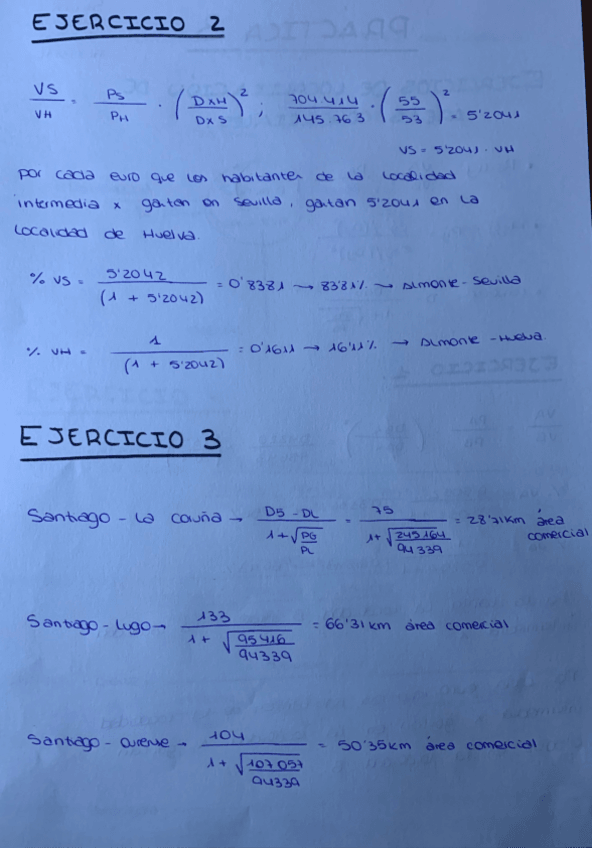 EJERCICIO 2
VS/VH = PS/PH · (DxH/DxS)²; 704.414/145.763 · (55/53)² = 5'2041
VS = 5'2041 · VH
por cada euro que los habitantes de la localidad
intermedia x gastan en Sevilla, gastan 5'2041 en la
localidad de Huelva.
% VS = 5'2042/(1 + 5'2042) = 0'8381 → 83'81% → Almonte - Sevilla
% VH = 1/(1 + 5'2042) = 0'1611 → 16'11% → Almonte - Huelva.
EJERCICIO 3
Santiago - La coruña → DS - DL/1+√PG/PL = 75/1+√245164/94339 = 28'71 km área
comercial
Santiago - Lugo → 133/1 + √95416/94339 = 66'31 km área comercial
Santiago - ourense → 104/1 + √107057/94339 = 50'35 km área comercial